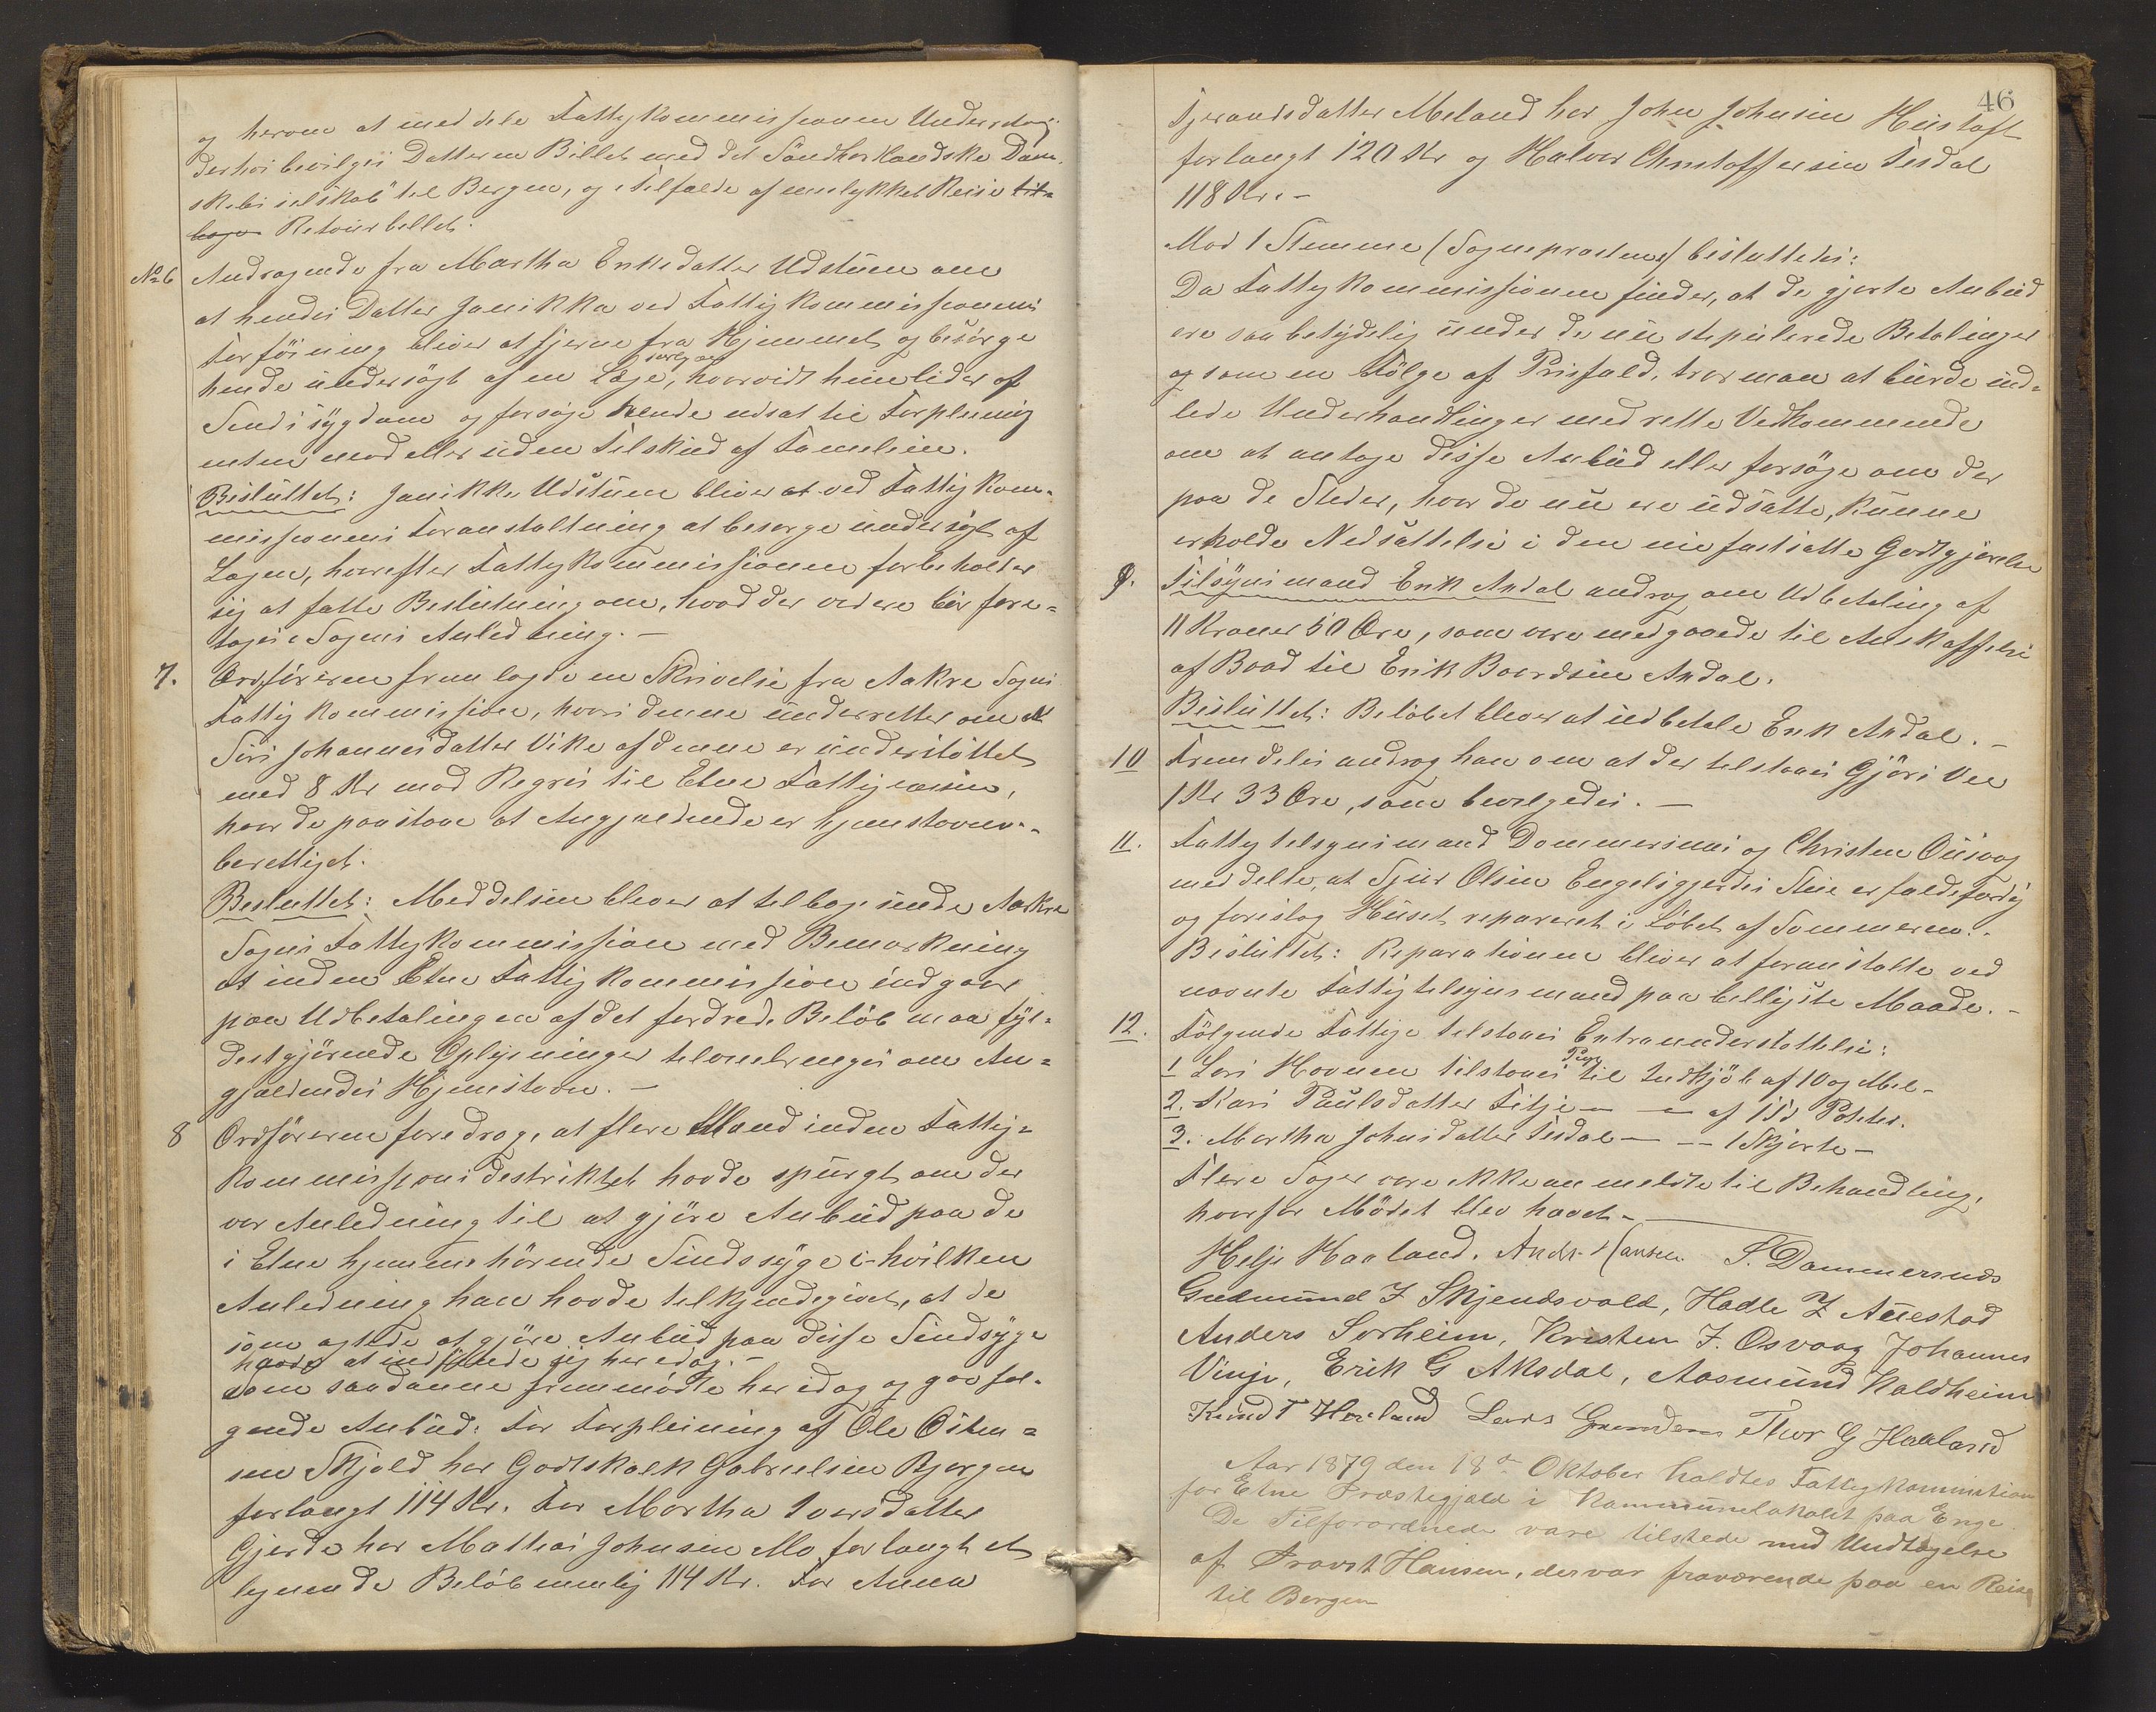 og herom at meddele Fattigkommissionen Underretning
derhos bevilges Datteren Billet med det Söndhorlandske Damp-
skibsselskab til Bergen, og i Tilfælde af mislykket Reise til-
bage Retourbillet.
No 6 Andragende fra Martha Eriksdatter Udstuen om
at hendes Datter Janikka ved Fattigkommissionens
Forföining bliver at fjerne fra Hjemmet og besörge
hende undersögt af en Læge, hvorvidt hun lider af
Sindssygdom og forsöge hende udsat til Forpleining
enten mod eller uden Tilskud af Familien.
Besluttet: Janikke Udstuen bliver at ved Fattigkom-
missionens Foranstaltning at besorge undersögt af
Lægen, hvorefter Fattigkommissionen forbeholder
sig at fatte Beslutning om, hvad der videre bör fore-
tages i Sagens Anledning. –
7. Ordföreren fremlagde en Skrivelse fra Aakre Sogns
Fattigkommission, hvori denne underretter om at
Siri Johannesdatter Vike af denne er understöttet
med 8 Kr mod Regres til Etne Fattigvæsen,
hvor de paastaar at Angjældende er hjemstavns-
berettiget.
Besluttet: Meddelsen bliver at tilbagesende Aakre
Sogns Fattigkommission med Bemærkning
at inden Etne Fattigkommission indgaar
paa Udbetalingen af det fordrede Belöb maa fyl-
destgjörende Oplysninger tilveiebringes om An-
gjældendes Hjemstavn. –
8 Ordföreren foredrog, at flere Mand inden Fattig-
kommissionsdistriktet havde spurgt om der
var Anledning til at gjöre Anbud paa de
i Etne hjemmehörende Sindssyge i hvilken
Anledning han havde tilkjendegivet, at de
som agtede at gjöre Anbud paa disse Sindsyge
havde at indfinde sig her idag. –
Som saadanne fremmödte her idag og gav föl-
gende Anbud: For Forpleining af Ole Osten-
sen Skjold har Godtskalk Gabrielsen Bjorgen
forlangt 114 Kr. For Martha Iversdatter
Gjerde har Mathias Johnsen Mo forlangt et
lignende Belöb nemlig 114 Kr. For Anna
46
Tjerandsdatter Meland har John Johnsen Hustoft
forlangt 120 Kr og Halvor Christoffersen Tesdal
118 Kr. –
Mod 1 Stemme (Sognepræstens) besluttedes:
Da Fattigkommissionen finder, at de gjorte Anbud
ere saa betydelig under de nu stipulerede Betalinger
og som en Fölge af Prisfald, tror man at burde ind-
lede Underhandlinger med rette Vedkommende
om at antage disse Anbud eller forsöge om der
paa de Steder, hvor de nu ere udsatte, kunne
erholde Nedsættelse i den nu fastsatte Godtgjörelse
9. Tilsynsmand Erik Axdal androg om Udbetaling af
11 Kroner 50 Öre, som vare medgaaede til Anskaffelse
af Baad til Erik Baardsen Axdal.
Besluttet: Belöbet bliver at udbetale Erik Axdal. –
10 Fremdeles androg han om at der tilstaaes Gjöri Vee
1 Kr 33 Öre, som bevilgedes. –
11. Fattigtilsynsmand Dommersnes og Christen Ousvog
meddelte, at Sjur Olsen Engelsgjerdes Stue er faldefærdig
og foreslog Huset repareret i Löbet af Sommeren. –
Besluttet: Reparationen bliver at foranstalte ved
nævnte Fattigtilsynsmænd paa billigste Maade. –
12. Fölgende Fattige tilstaaes Extraunderstöttelse:
1 Lari Havnen tilstaaes til Indkjöb af 10 og Mel –
2. Kari Paulsdatter Fitje – – af 1 Td Poteter.
3. Martha Johnsdatter Tesdal – – 1 Skjorte –
Flere Sager vare ikke anmeldte til Behandling,
hvorfor Mödet blev hævet. –
Helje Haaland. Andr. Hansen S. Dammersnæs
Gudmund J Skjendsvold, Hadle J Auestad
Anders Sörheim, Kristen J. Osvaag Johannes
Vinje, Erik G Aksdal, Aasmund Kaldheim
Knud T Haaland Lars Grindem Thor G Haaland
Aar 1879 den 18de Oktober holdtes Fattigkommission
for Etne Præstegjæld i Kommunelokalet paa Enge.
De Tilforordnede vare tilstede med Undtagelse
af Provst Hansen, der var fraværende paa en Reise
til Bergen